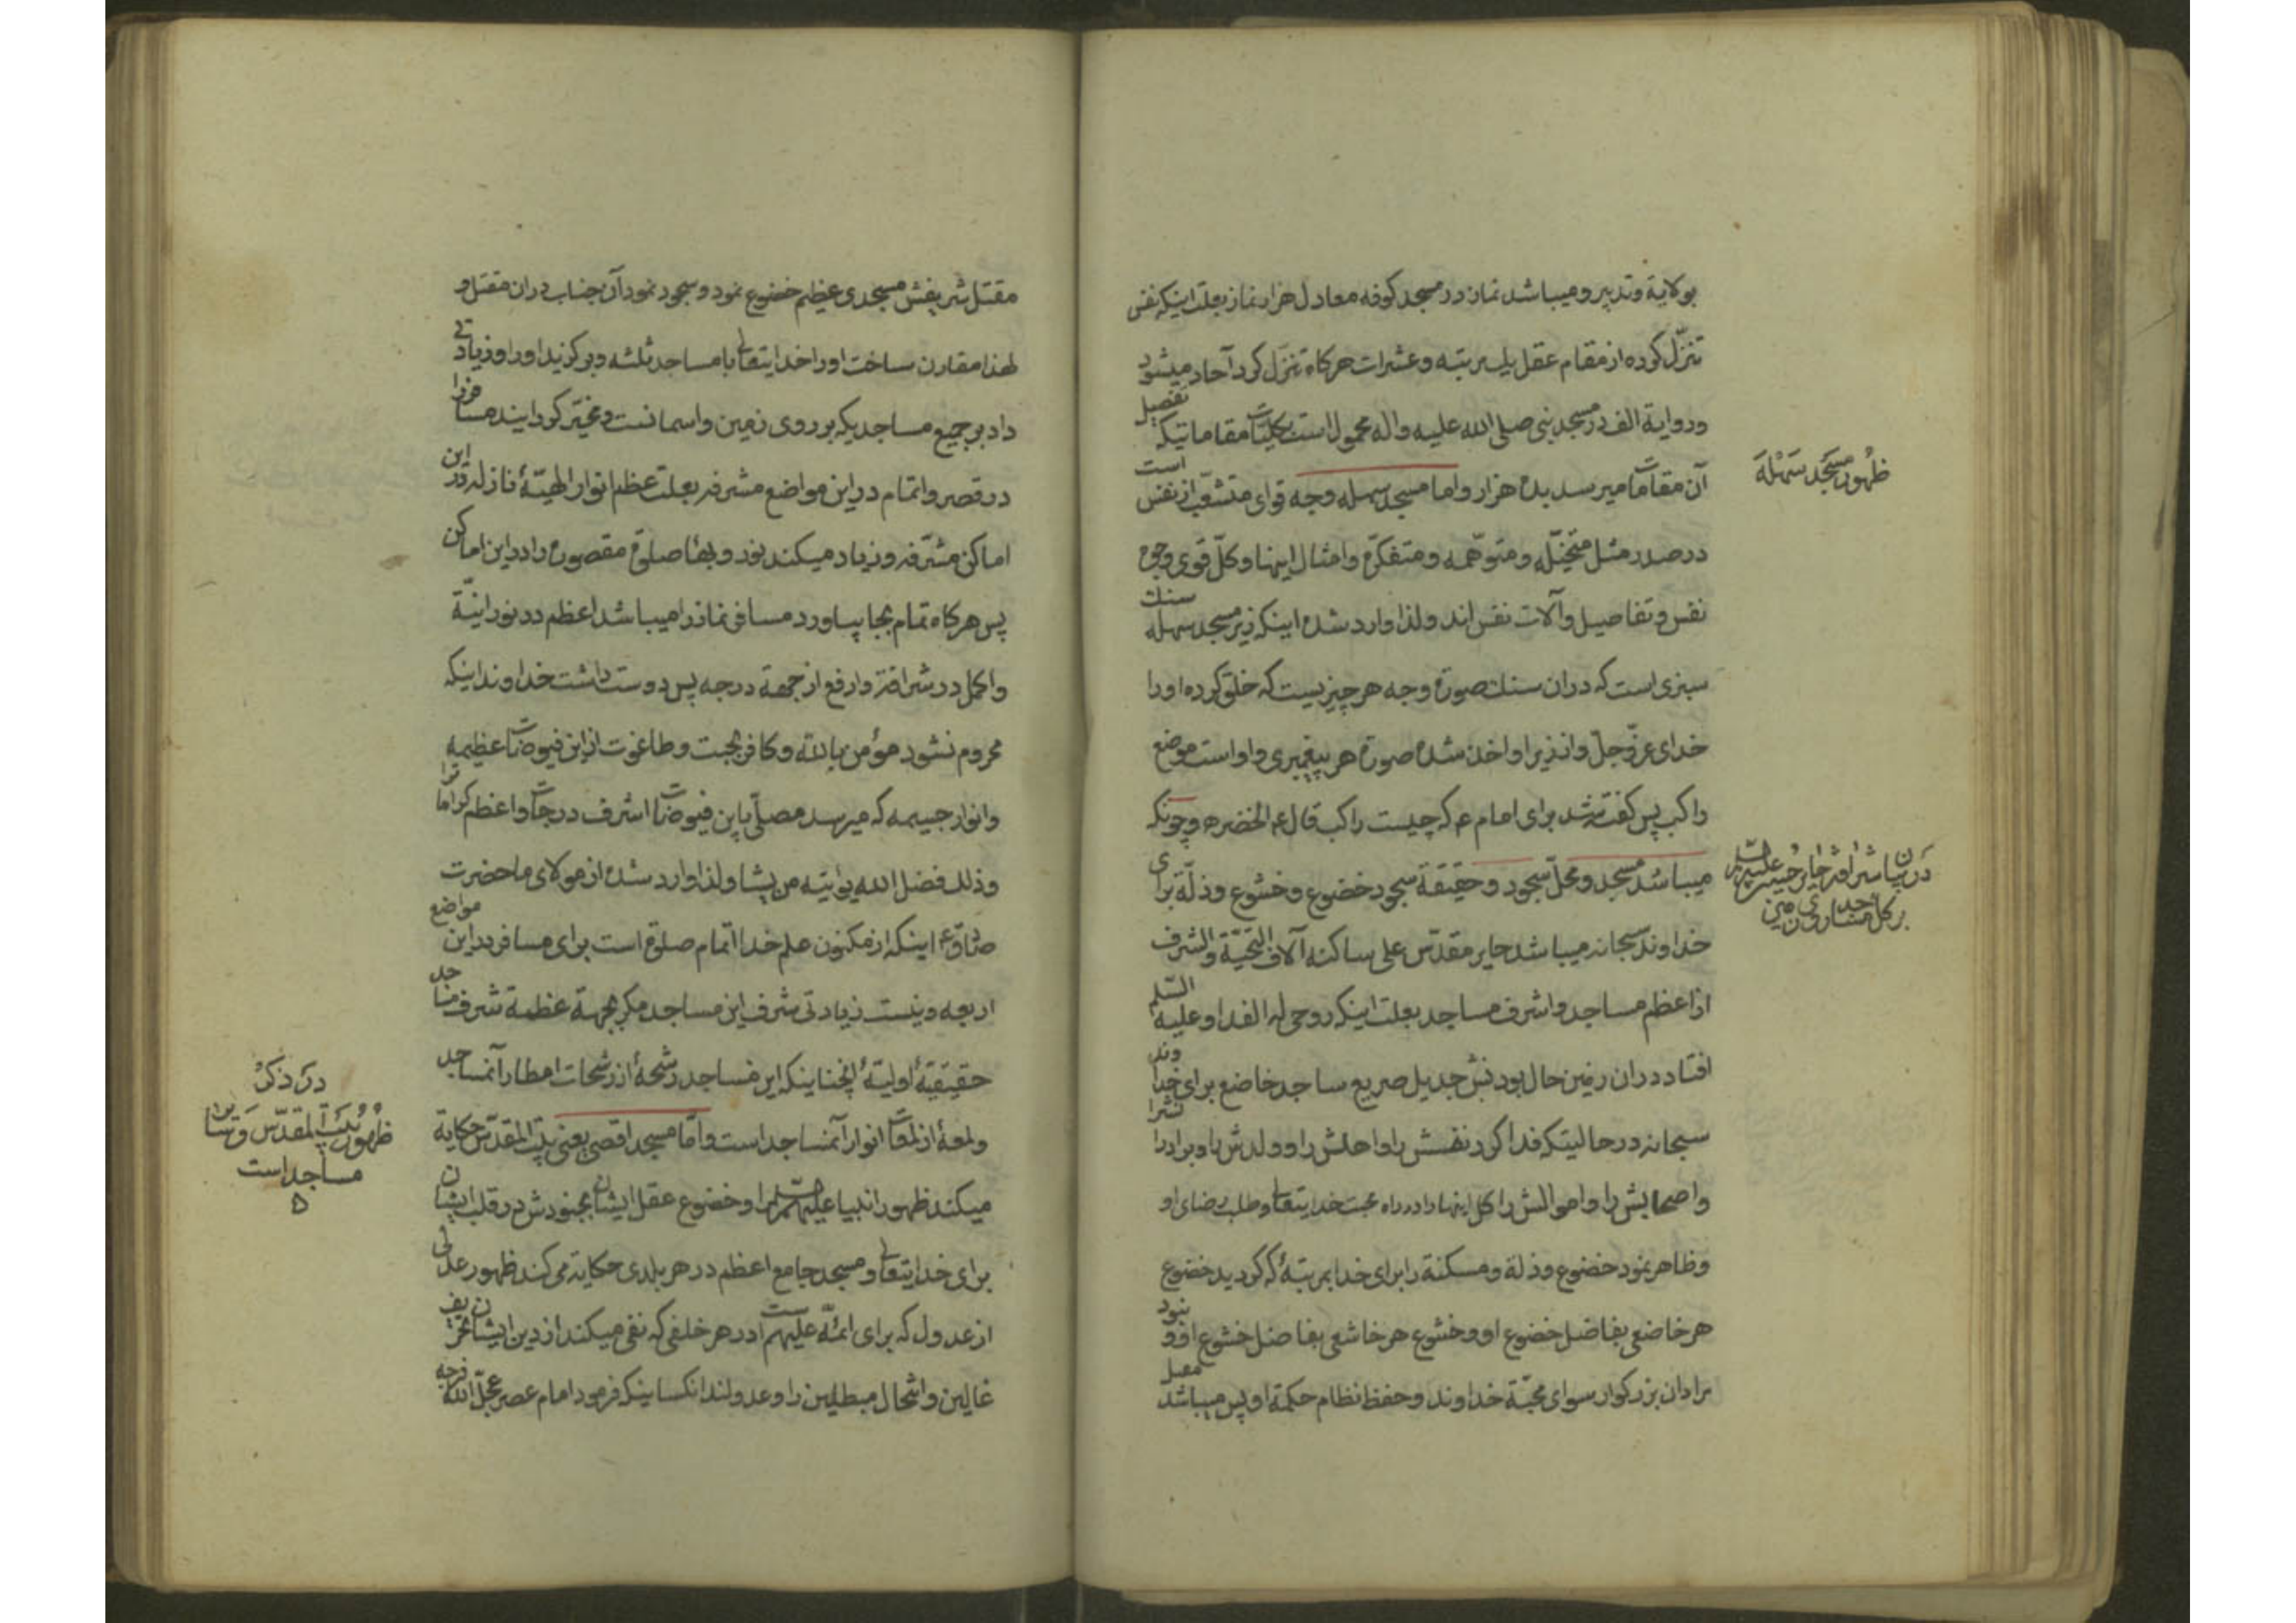 بولایة و تدبیر و میباشد نماز در مسجد کوفه معادل هزار نماز بعلت اینکه نفس
تنزّل کرده از مقام عقل بیک مرتبه و عشرات هرکاه تنزّل کرد آحاد میشود
و روایة الف در مسجد نبی صلی الله علیه و اله محمول است بکلیّات مقاماتیکه تفصیل
آن مقامات میرسد بده هزار و اما مسجد سهله وجه قوای متشعّب از نفس است
ظهور مسجد سهله
در صدر مثل متخیّله و متوهّمه و متفکرّه و امثال اینها و کلّ قوی وجوه
نفس و تفاصیل و آلات نفس اند و لذا وارد شده اینکه زیر مسجد سهله سنك
سبزی است که در ان سنك صورة وجه هر چیزیست که خلق کرده او را
خدای عزّ و جلّ و از زیر او اخذ شده صورة هر پیغمبری و او است موضع
راکب پس کفته شد برای امام ع که چیست راکب قال ع الخضر ع و چونکه
میباشد مسجد و محلّ سجود و حقیقة سجود خضوع و خشوع و ذلّة برای
در بیان شرافة حایر حسین علیه السّلام
بر کل مساجد روی زمین
خداوند سبحانه میباشد حایر مقدّس علی ساکنه آلاف التحیّة و الشرف
از اعظم مساجد و اشرف مساجد بعلت اینکه روحی له الفدا و علیه السّلم
افتاد در ان زمین حال بودنش جدیل صریع ساجد خاضع برای خداوند
سبحانه در حالیتکه فدا کرد نفسش را و اهلش را و ولدش را و برادرا نشرا
و اصحابش را و اموالش را کل اینها را در راه محبت خدایتعالی و طلب رضای او
و ظاهر نمود خضوع و ذلة و مسکنة را برای خدا بمرتبهٔ که کردید خضوع
هر خاضعی بفاضل خضوع او و خشوع هر خاشعی بفاضل خشوع او و نبود
مراد ان بزرکوار سوای محبّة خداوند و حفظ نظام حکمة او پس میباشد محل
مقتل شریفش مسجدی عظیم خضوع نمود و سجود نمود آن جناب در ان مقتل و
لهذا مقارن ساخت او را خدایتعالی با مساجد ثلثه و برکزید او را و زیادتی
داد بر جمیع مساجدیکه بر روی زمین و اسمانست و مخیّر کردانید مسافرا
در قصر و اتمام در این مواضع مشرفه بعلت عظم انوار الهیّهٔ نازله در این
اماکن مشرّفه و زیاد میکند نور و بهاء صلوة مقصوره را در این اماکن
پس هرکاه تمام بجا بیاورد مسافر نماز را میباشد اعظم در نورانیّة
و اکمل در شرافة و ارفع از جهة درجه پس دوست داشت خداوند اینکه
محروم نشود مؤمن بالله و کافر بجبت و طاغوت از این فیوضات عظیمه
و انوار جسیمه که میرسد مصلّی باین فیوضات اشرف درجات و اعظم کراماترا
و ذلك فضل الله یؤتیه من یشا و لذا وارد شده از مولای ما حضرت
صادق ع اینکه از مکنون علم خدا اتمام صلوة است برای مسافر در این مواضع
اربعه و نیست زیادتی شرف این مساجد مکر بجهة عظمة شرف مساجد
حقیقیّهٔ اولیّهٔ انچنا ینکه این مساجد رشحهٔ از رشحات امطار آنمساجد
در ذکر
ظهور بیت المقدّس و سایر
مساجد است
و لمعهٔ از لمعات انوار آنمساجد است و امّا مسجد اقصی یعنی بیت المقدّس حکایة
میکند ظهور انبیا علیهم السّلم را و خضوع عقل ایشان بجنودش در قلب ایشان
برای خدایتعالی و مسجد جامع اعظم در هر بلدی حکایة می کند ظهور عدلی
از عدول که برای ائمّه علیهم است در هر خلفی که نفی میکند از دین ایشان تحریف
غالین و انتحال مبطلین را و عدولند انکسا ینکه فرمود امام عصر عجّل الله فرجه